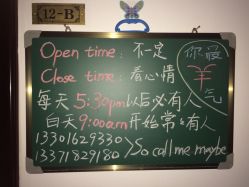 12-B
Open time: 不一定
Close time: 看心情
每天5:30pm以后必有人
白天9:00am开始常有人
13301629330
13371829180
So call me maybe
你最
羊
气